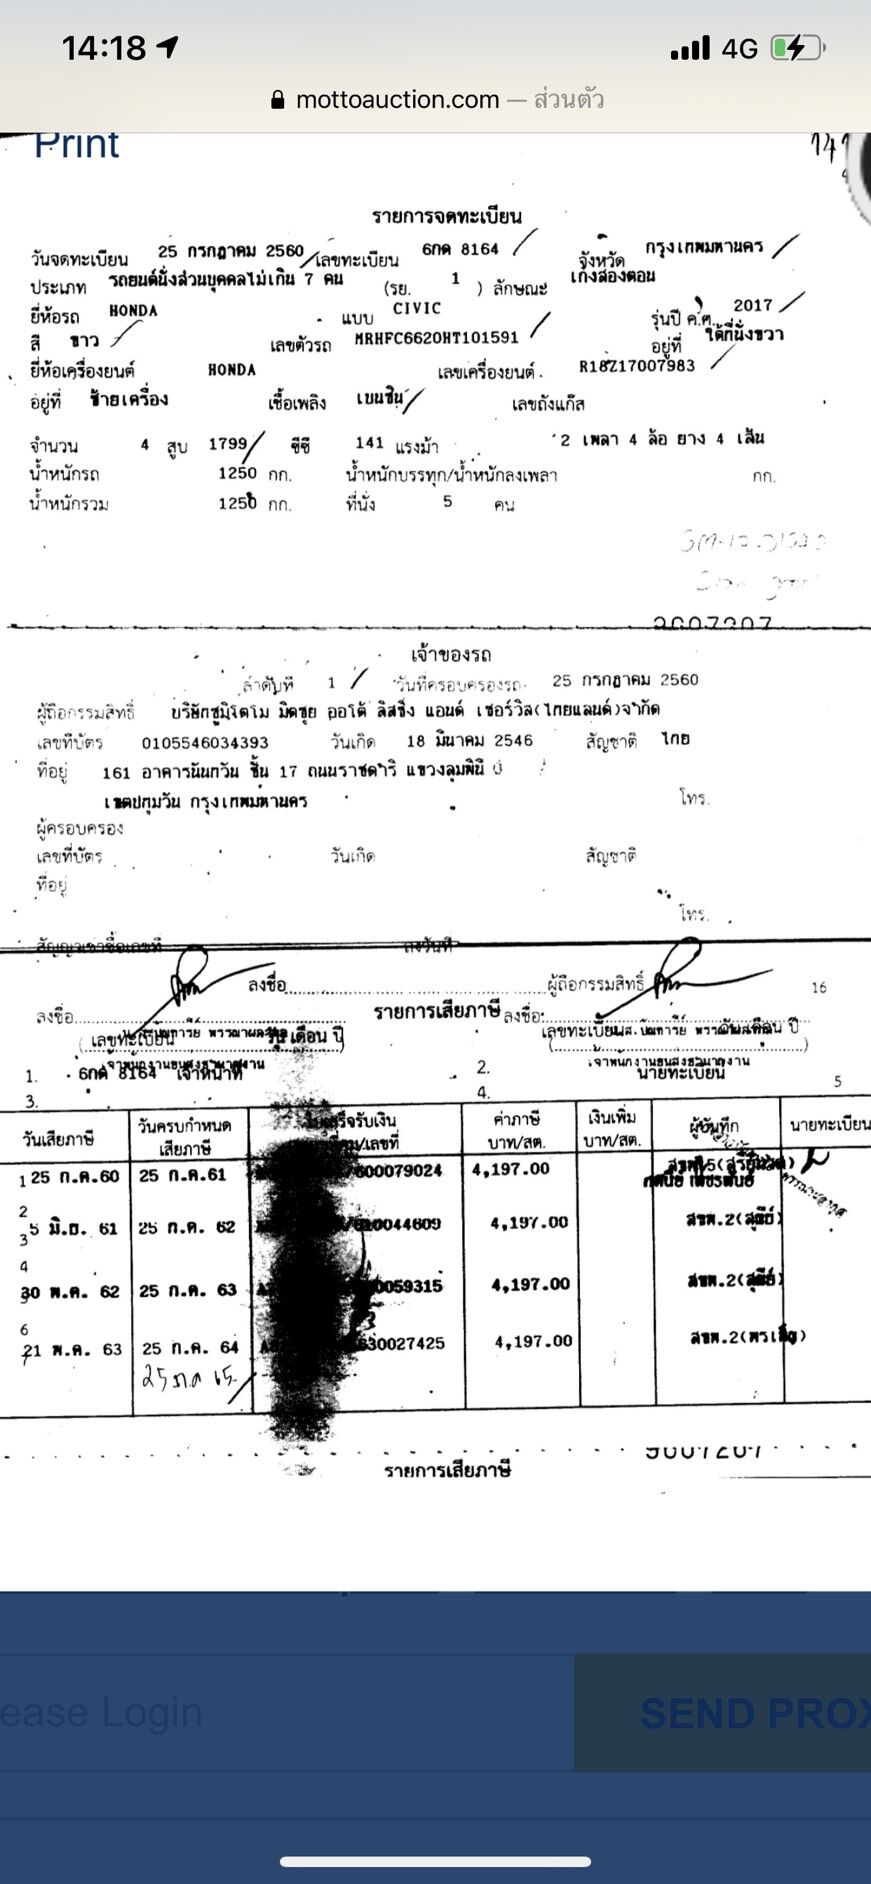 14:18
4G
mottoauction.com — ส่วนตัว
Print
รายการจดทะเบียน
วันจดทะเบียน 25 กรกฎาคม 2560 เลขทะเบียน 6กด 8164 จังหวัด กรุงเทพมหานคร
ประเภท รถยนต์นั่งส่วนบุคคลไม่เกิน 7 คน (รย. 1 ) ลักษณะ เก๋งสองตอน
ยี่ห้อรถ HONDA แบบ CIVIC รุ่นปี ค.ศ. 2017
สี ขาว เลขตัวรถ MRHFC6620HT101591 อยู่ที่ ใต้ที่นั่งขวา
ยี่ห้อเครื่องยนต์ HONDA เลขเครื่องยนต์ R18Z17007983
อยู่ที่ ซ้ายเครื่อง เชื้อเพลิง เบนซิน เลขถังแก๊ส
จำนวน 4 สูบ 1799 ซีซี 141 แรงม้า 2 เพลา 4 ล้อ ยาง 4 เส้น
น้ำหนักรถ 1250 กก. น้ำหนักบรรทุก/น้ำหนักลงเพลา กก.
น้ำหนักรวม 1250 กก. ที่นั่ง 5 คน
เจ้าของรถ
ลำดับที่ 1 วันที่ครอบครองรถ 25 กรกฎาคม 2560
ผู้ถือกรรมสิทธิ์ บริษัทซูมิโตโม มิตซุย ออโต้ ลิสซิ่ง แอนด์ เซอร์วิส(ไทยแลนด์)จำกัด
เลขที่บัตร 0105546034393 วันเกิด 18 มีนาคม 2546 สัญชาติ ไทย
ที่อยู่ 161 อาคารนันทวัน ชั้น 17 ถนนราชดำริ แขวงลุมพินี
เขตปทุมวัน กรุงเทพมหานคร โทร.
ผู้ครอบครอง
เลขที่บัตร วันเกิด สัญชาติ
ที่อยู่
โทร.
สัญญาเช่าซื้อเลขที่ ลงวันที่
ลงชื่อ ผู้ถือกรรมสิทธิ์ 16
ลงชื่อ รายการเสียภาษี ลงชื่อ
เลขทะเบียน วัน เดือน ปี เลขทะเบียน วัน เดือน ปี
1. 6กด 8164 เจ้าหน้าที่ 2. นายทะเบียน
3. 4. 5
วันเสียภาษี วันครบกำหนดเสียภาษี ใบเสร็จรับเงิน เล่ม/เลขที่ ค่าภาษี บาท/สต. เงินเพิ่ม บาท/สต. ผู้บันทึก นายทะเบียน
1 25 ก.ค.60 25 ก.ค.61 600079024 4,197.00
2
3 5 มิ.ย. 61 25 ก.ค. 62 610044609 4,197.00 สขพ.2(สุดีย์)
4
30 พ.ค. 62 25 ก.ค. 63 0059315 4,197.00 สขพ.2(สุดีย์)
6
21 พ.ค. 63 25 ก.ค. 64 630027425 4,197.00
25 ก.ค 65
รายการเสียภาษี
ease Login
SEND PROX